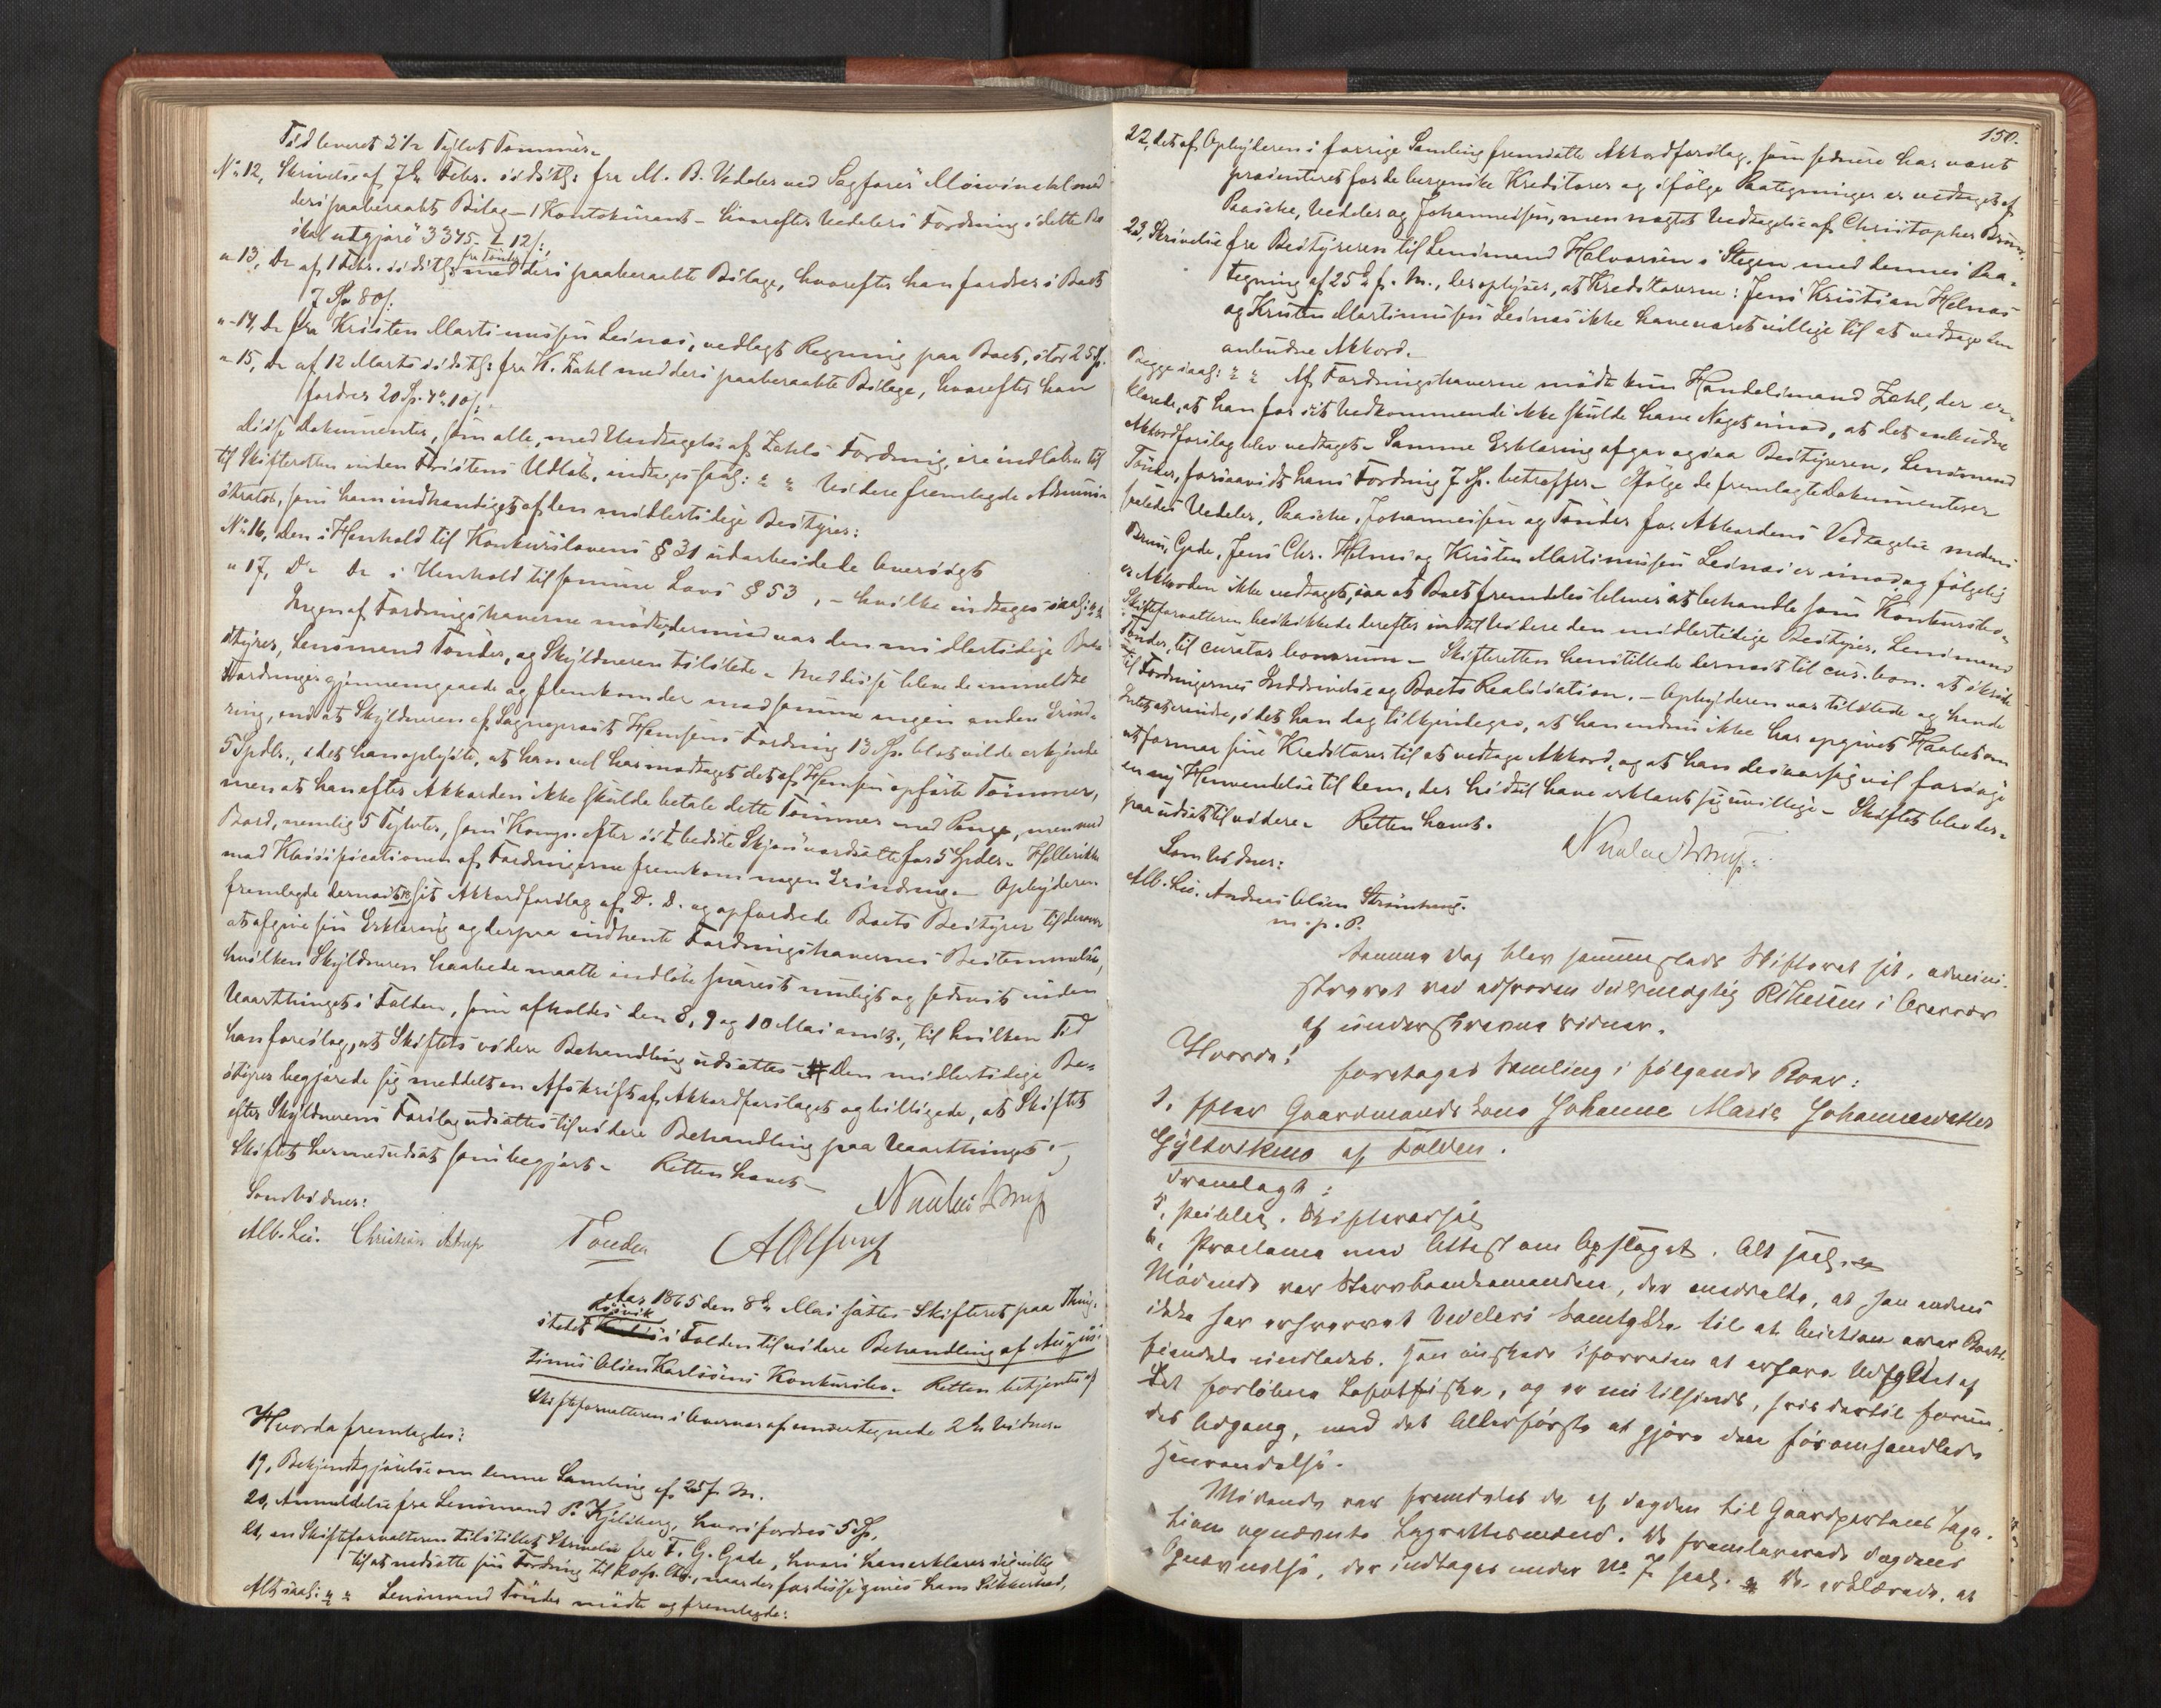 Tid leveret 2½ Tylvt Tømmer.
No 12, Skrivelse af 7de Febr. sidstl: fra M. B. Vedeler ved Sagfører Mowinckel med
deri paaberaabt Bilag – 1 Kontokurant – hvorefter Vedelers Fordring i dette Bo
skal udgjøre 3345 – 2 – 12 /:
" 13, Do af 1 Febr. sidstl: fra Tønder med deri paaberaabte Bilage, hvorefter han fordrer i Boet
7 Sp 80 /:
" 14, Do fra Kristen Martinussen Leinæs, vedlagt Regning paa Boet, stor 25 Sp.
" 15, Do af 12 Marts sidstl: fra K. Zahl med deri paaberaabte Bilage, hvorefter han
fordrer 20 Sp. 4 " 10 /:
Disse Dokumenter, som alle, med Undtagelse af Zahls Fordring, ere indløbne til
til Skifteretten inden Fristens Udløb, indtages saal: " " Videre fremlagde Admini-
strator, som ham indhændiget af den midlertidige Bestyrer:
No 16, Den i Henhold til Konkurslovens § 31 udarbeidede Oversigt
" 17, Do Do i Henhold til samme Lovs § 53, – hvilke indtages saal: " "
Ingen af Fordringshaverne mødte, derimod var den midlertidige Be-
styrer, Lensmand Tønder, og Skyldneren tilstede – Med disse bleve de anmeldte
Fordringer gjennemgaaede og fremkom der mod samme ingen anden Erind-
ring, end at Skyldneren af Sogneprest Hansens Fordring 13 Sp. blot vilde erkjende
5 Spdlr., idet han oplyste, at han vel har modtaget det af Hansen opførte Tømmer,
men at han efter Akkorden ikke skulde betale dette Tømmer med Penge, men med
Bord, nemlig 5 Tylvter, som Komp. efter sit bedste Skjøn værdsatte for 5 Spdlr. Heller ikke
mod Klassificationen af Fordringerne fremkom nogen Erindring – Opbyderen
fremlagde dernæst 18 sit Akkordforslag af D. D. og opfordrede Boets Bestyrer til derover
at afgive sin Erklæring og derpaa indhente Fordringshavernes Bestemmelse,
hvilken Skyldneren haabede maatte indløbe snarest muligt og senest inden
Vaarthinget i Folden, som afholdes den 8, 9 og 10 Mai a. c., til hvilken Tid
han foreslog, at Skiftets videre Behandling udsattes – Den midlertidige Be-
styrer begjærede sig meddelt en Afskrift af Akkordforslaget og billigede, at Skiftet
efter Skyldnerens Forslag udsattes til videre Behandling paa Vaarthinget –
Skiftet hermed udsat som begjært – Retten hævet –
Nicolai Astrup
Som Vidner:
Alb. Lie. Christian Astrup Tønder A Olsen
Aar 1865 den 8de Mai sattes Skifteret paa Thing-
stedet Røsvik i Folden til videre Behandling af Augus-
tinus Olsen Karlsøens Konkursbo – Retten betjentes af
Skifteforvalteren i Overvær af undertegnede 2de Vidner –
Hvorda fremlagdes:
19, Bekjendtgjørelse om denne Samling af 25 f. M.
20, Anmeldelse fra Lensmand P. Kjelsberg, hvori fordres 5 Sp,
21, en Skifteforvalteren tilstillet Skrivelse fra F. G. Gade, hvori han erklærer sig villig
til at nedsætte sin Fordring til 20 Sp., naar der for disse gives ham Sikkerhed,
Alt saal: " " Lensmand Tønder mødte og fremlagde:
150.
22, det af Opbyderen i forrige Samling fremsatte Akkordforslag, som senere har været
præsenteret for de bergenske Kreditorer og ifølge Paategninger er vedtaget af
Paasche, Vedeler og Johannessen, men nægtet Vedtagelse af Christopher Bruun
23, Skrivelse fra Bestyreren til Lensmand Halvorsen i Stegen med dennes Paa-
tegning af 25de f. M., der oplyser, at Kreditorerne: Jens Kristian Helnæs
og Kristen Martinussen Leinæs ikke have været villige til at vedtage den
anbudne Akkord.
Begge saal: " " Af Fordringshaverne mødte kun Handelsmand Zahl, der er-
klærede, at han for sit Vedkommende ikke skulde have Noget imod, at det anbudne
Akkordforslag blev vedtaget – Samme Erklæring afgav ogsaa Bestyreren, Lensmand
Tønder, forsaavidt hans Fordring 7 Sp. betræffer – Ifølge de fremlagte Dokumenter er
saaledes Vedeler, Paasche, Johannessen og Tønder for Akkordens Vedtagelse medens
Bruun, Gade, Jens Chr. Helnæs og Kristen Martinussen Leinæs er imod og følgelig
er Akkorden ikke vedtaget, saa at Boet fremdeles bliver at behandle som Konkursbo –
Skifteforvalteren beskikkede derefter indtil videre den midlertidige Bestyrer, Lensmand
Tønder, til curator bonorum – Skifteretten henstillede dernæst til cur. bon. at skride
til Fordringernes Inddrivelse og Boets Realisation. – Opbyderen var tilstede og havde
Intet at erindre, idet han dog tilkjendegav, at han endnu ikke har opgivet Haabet om
at formaa sine Kreditorer til at vedtage Akkord, og at han desaarsag vil forsøge
en ny Henvendelse til dem, der hidtil have erklæret sig uvillige – Skiftet blev der-
paa udsat til videre – Retten hævet.
Nicolai Astrup.
Som Vidner:
Alb. Lie. Andreas Olsen Strømhaug.
m. p. P.
Samme Dag blev sammesteds Skifteret sat, admini-
streret ved edsvoren Fuldmægtig i Overvær
af underskrevne Vidner.
Hvorda!
foretages Samling i følgende Boer:
1. efter Gaardmands Kone Johanne Marie Johannesdatter
Gyltvikmo af Folden.
Fremlagt:
5, Skiftevarsel
6, Proclama med Attest om Opslaget. Alt saal. "
Mødende var Sterbboenkemanden, der anmeldte, at han endnu
ikke har erhvervet Vedelers Samtykke til at Auction over Boets
Eiendele undlades. Han ønskede iforveien at erfare Udfaldet af
det forløbne Lofotfiske, og er nu tilsinds, hvis dertil forun-
des Adgang, med det Allerførste at gjøre den foromhandlede
Henvendelse.
Mødende var fremdeles de af Fogden til Gaardpartens Taxa-
tion opnævnte Lagrettesmænd. De fremleverede Fogdens
Opnævnelse, der indtages under No 7 saal. " De erklærede, at